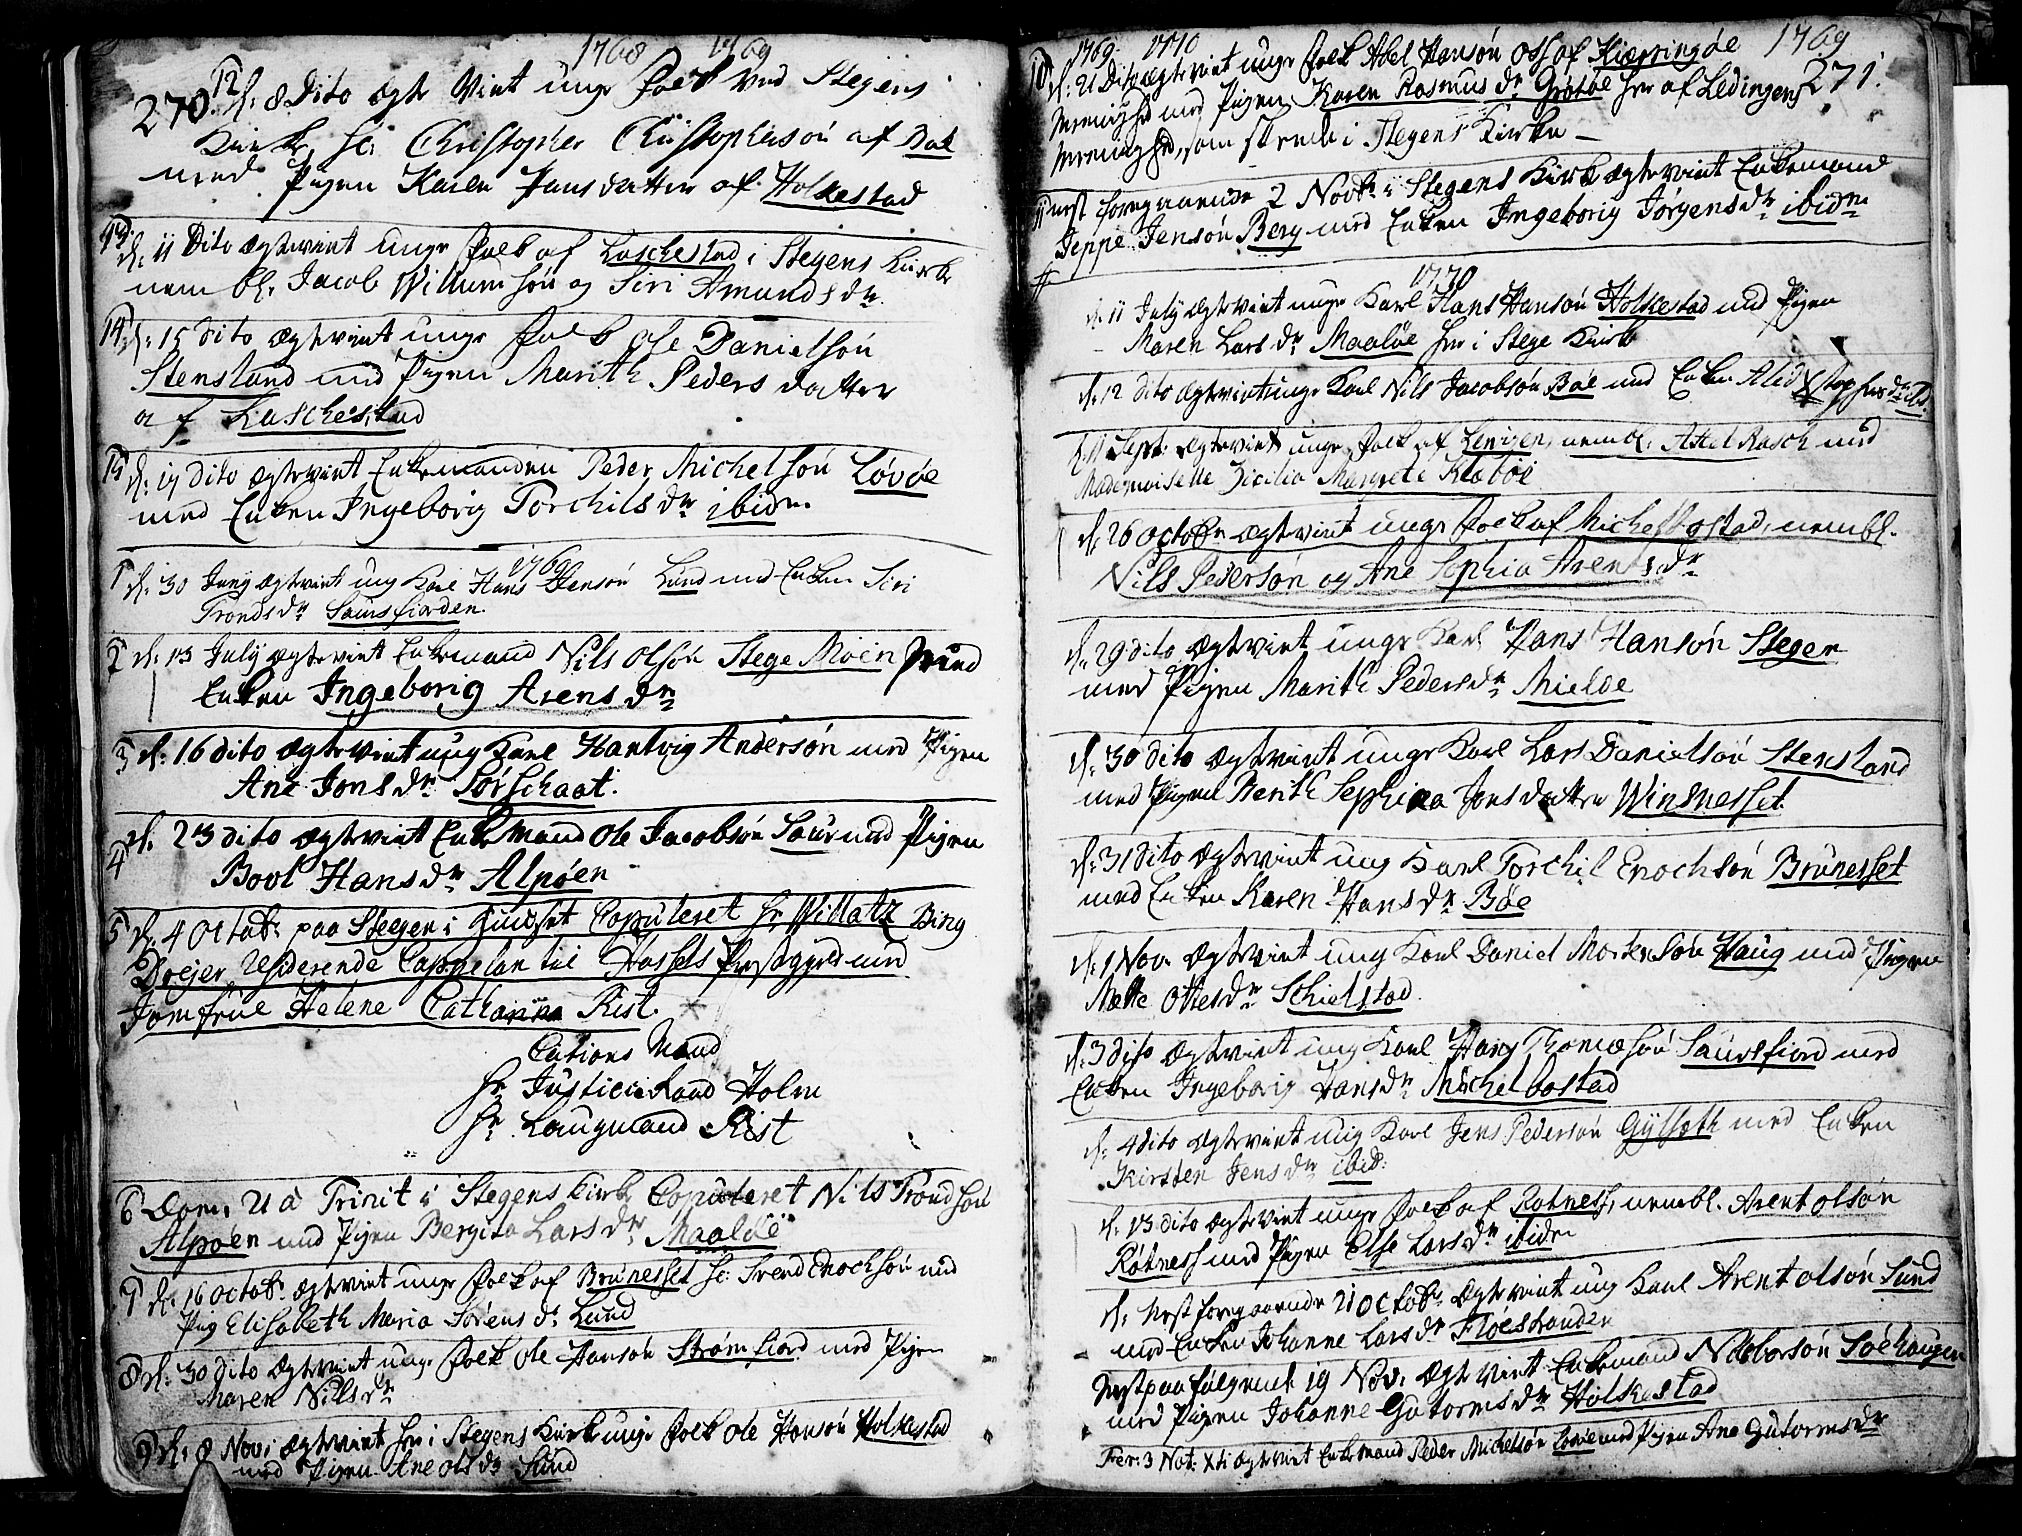 1768 1769
270.
12 d: 8 Dito Ægtevint unge Folk ved Stegens
Kirke, sc: Christopher Christophersón af Bøe
med Pigen Karen Jansdatter af Holkestad
13 d: 11 Dito Ægtevint unge Folk af Laschestad i Stegens Kirke
nembl. Jacob Willumsón og Siri Amunds dr
14 d: 15 dito Ægtevint unge Folk Ole Danielsón
Stensland med Pigen Marith Peders datter
af Laschestad
15 d: 17 dito Ægtevint Enkemanden Peder Michelsón Lóvóe
med Enken Ingeborig Torchils dr ibidm
1769
1 d: 30 Juny Ægtevint ung Karl Hans Jensón Lund med Enken Siri
Tronds dr Saursfiorden
2 d: 13 July Ægtevint Enkemand Nils Olsón Stege Moen med
Enken Ingeborig Arens dr
3 d: 16 dito Ægtevint ung Karl Hartvig Andersón med Pigen
Ane Jons dr Sórschaat.
4 d: 23 dito Ægtevint Enkemand Ole Jacobsón Saur med Pigen
Bool Hans dr Alpóen
5 d: 4 Octobr paa Stegen i Huuset Copuleret hr Willatz Bing
Drejer Residerende Cappelan til Hassels Præstegield med
Jomfrue Helene Catharina Rist.
Cations Mænd
hr Justice Raad Holm
hr Laugmand Rist
6 Dom: 21 à Trinit i Stegens Kirke Copuleret Nils Trondsón
Alpóen med Pigen Bergita Lars dr Maalóe
7 d: 16 Octobr Ægtevint unge Folk af Brunesset sc: Svend Enochsón med
Pig Elisabeth Maria Sórens dr Lund
8 d: 30 dito Ægtevint unge Folk Ole Hansón Stróm fiord med Pigen
Maren Nills dr
9 d: 8 Nov: Ægtevint her i Stegens Kirke unge Folk Ole Hansón Holkestad
med Pigen Ane Ols dr Sund
1769 1770 1769
271.
10 d: 21 Dito Ægtevint unge Folk Abel Hansón af Kierringóe
Menighed med Pigen Karen Rasmus dr Grótóe her af Ledingens
Menighed, som skeede i Stegens Kirke
11 nest foregaaende 2 Novbr i Stegens Kirke Ægtevint Enkemand
Jeppe Jensón Berg med Enken Ingeborig Jórgens dr ibidm
1770
d: 11 July Ægtevint unge Karl Hans Hansón Holkestad med Pigen
Maren Lars dr Maalóe her i Stege Kirke
d: 12 dito Ægtevint unge Karl Nils Jacobsón Bóe med Enken Alid Xstophers dr ibid.
d: 11 Sept: Ægtevint unge Folk af Levigen, nembl. Attel Rasch med
Mademoiselle Zicilia Margrete Klæbóe
d: 26 Octobr Ægtevint unge Folk af Michelbostad, nembl.
Nils Pedersón og Ane Sophia Arents dr
d: 29 dito Ægtevint unge Karl Hans Hansón Stegen
med Pigen Marith Peders dr Mielde
d: 30 dito Ægtevint unge Karl Lars Danielsón Stensland
med Pigen Berith Sephia Jons datter Winsnesset
d: 31 dito Ægtevint ung Karl Torchil Enochsón Brunesset
med Enken Karen Hans dr Bóe
d: 1 Nov. Ægtevint ung Karl Daniel Mortensón Haug med Pigen
Mette Ottes dr Schielstad
d: 3 dito Ægtevint ung Karl Hans Thomæsón Saursfiord med
Enken Ingeborig Hans dr Michelbostad
d: 4 dito Ægtevint ung Karl Jens Pedersón Gylseth med Enken
Kirsten Jens dr ibid:
d: 13 dito Ægtevint unge Folk af Rótness, nembl. Arent Olsón
Rótness med Pigen Else Lars dr ibidm
d: Nest foregaaende 21 Octobr Ægtevint ung Karl Arent Olsón Sund
med Enken Johanne Lars dr Flóestranden
Nest paafólgende 19 Nov. Ægtevint Enkemand Sóehaugen
med Pigen Johanne Gutorms dr Holkestad
Fer: 3 Nat: Xti Ægtevint Enkemand Peder Michelsón Lovóe med Pigen Ane Gutorms dr